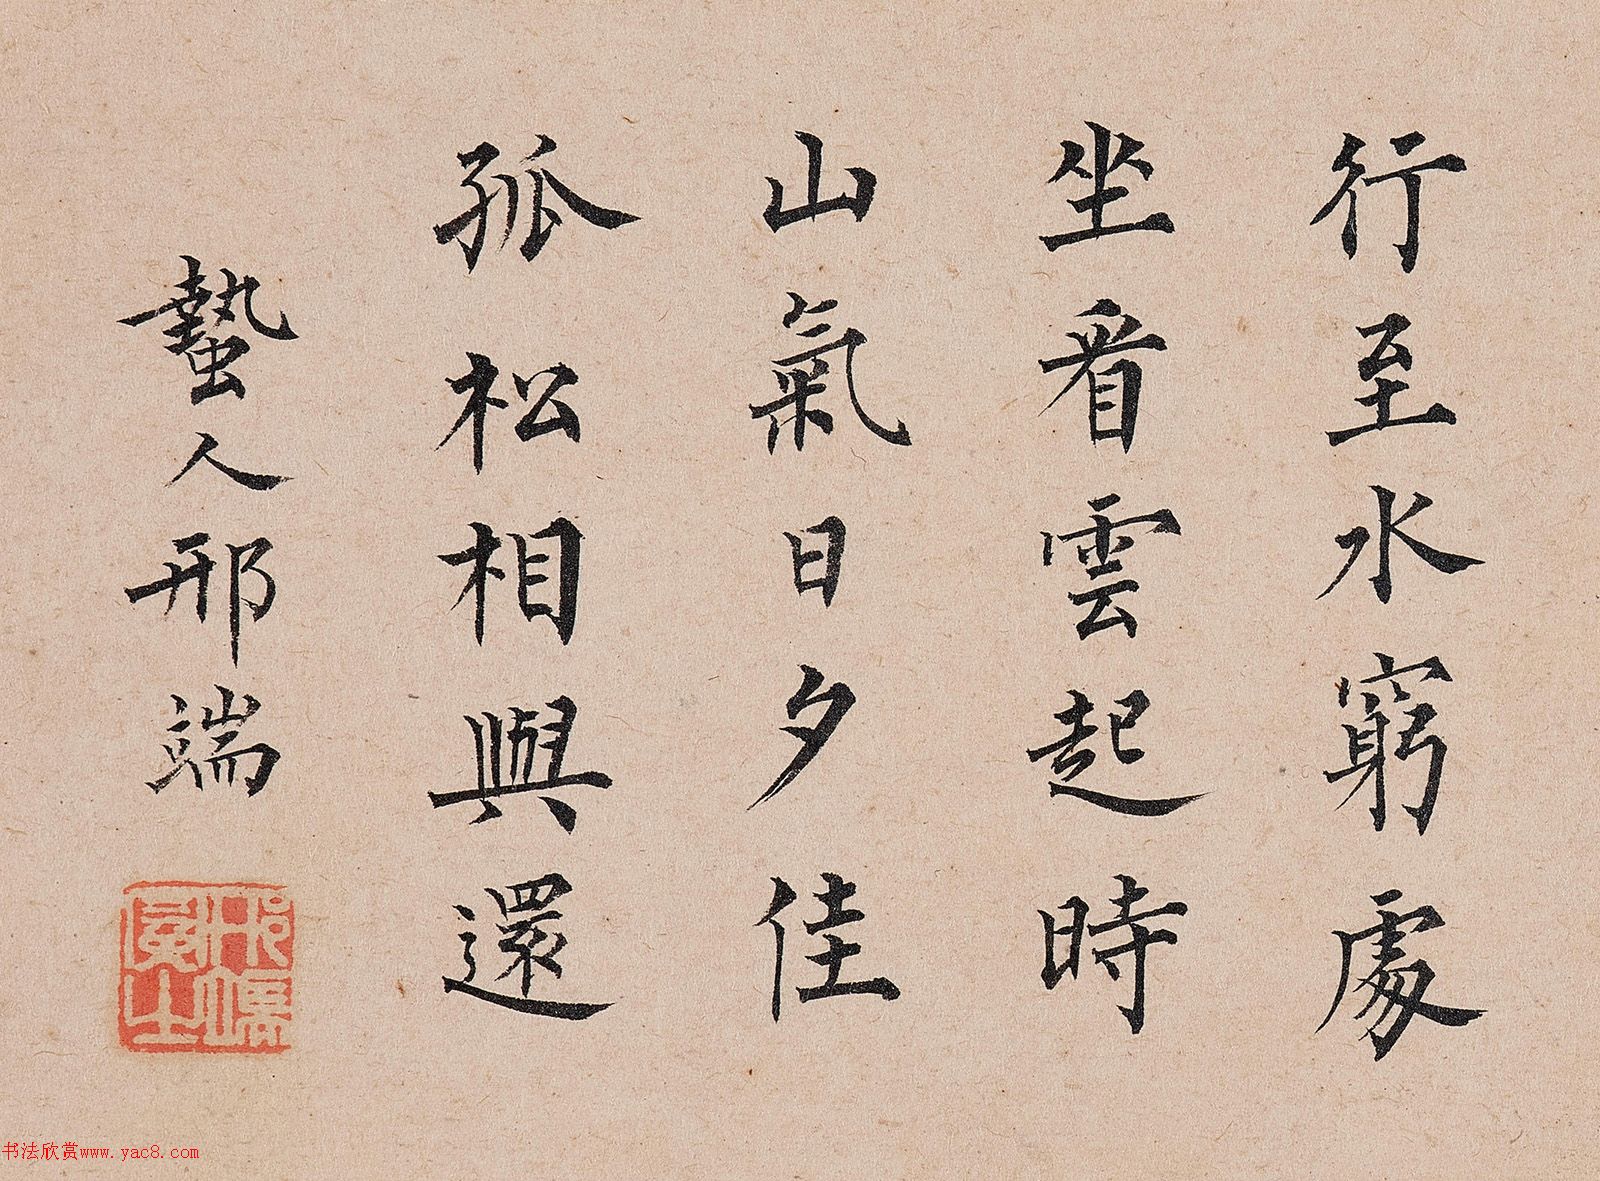 行至水窮處
坐看雲起時
山氣日夕佳
孤松相與還
蟄人邢端
书法欣赏www.yac8.com